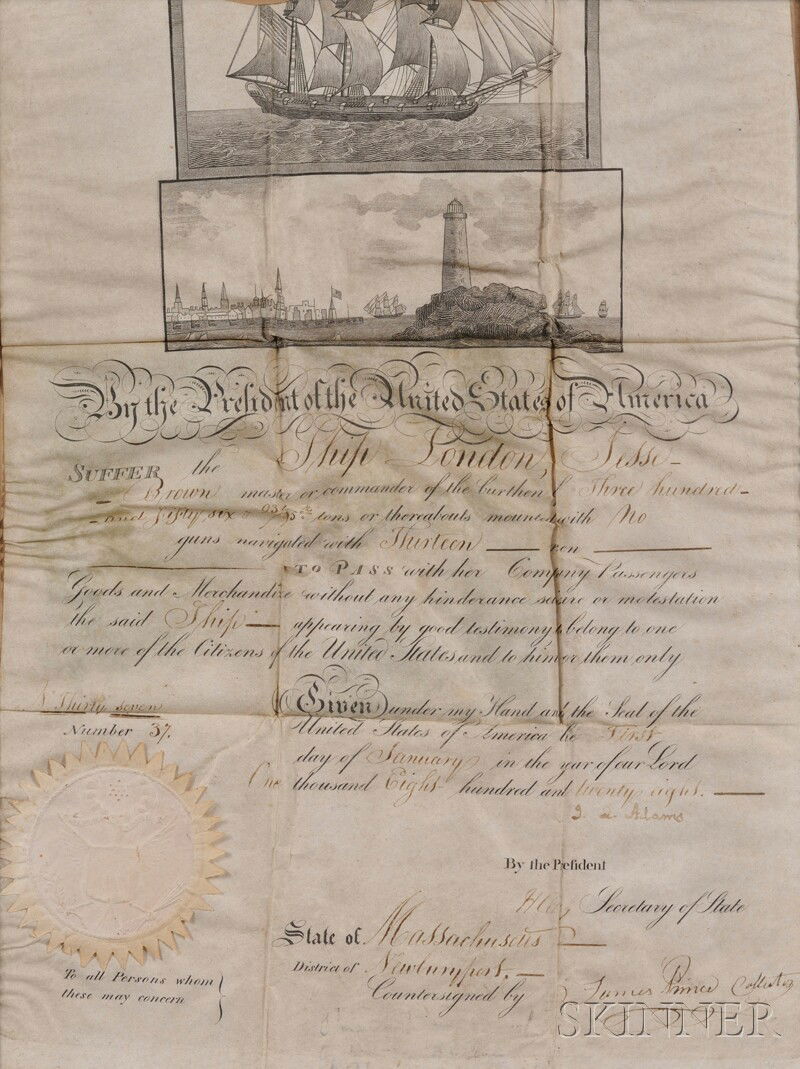 By the President of the United States of America
SUFFER the Ship London, Jesse
Brown master or commander of the burthen of Three hundred
and fifty six tons or thereabouts mounted with No
guns navigated with Thirteen men
TO PASS with her Company Passengers
Goods and Merchandize without any hinderance seisure or molestation
the said Ship appearing by good testimony to belong to one
or more of the Citizens of the United States and to him or them only
Thirty seven
Number 37.
Given under my Hand and the Seal of the
United States of America the First
day of January in the year of our Lord
One thousand Eight hundred and twenty eight.
J. Q. Adams
By the President
H Clay Secretary of State
State of Massachusetts
District of Newburyport.
Countersigned by James Prince Collector
To all Persons whom
these may concern
SKINNER